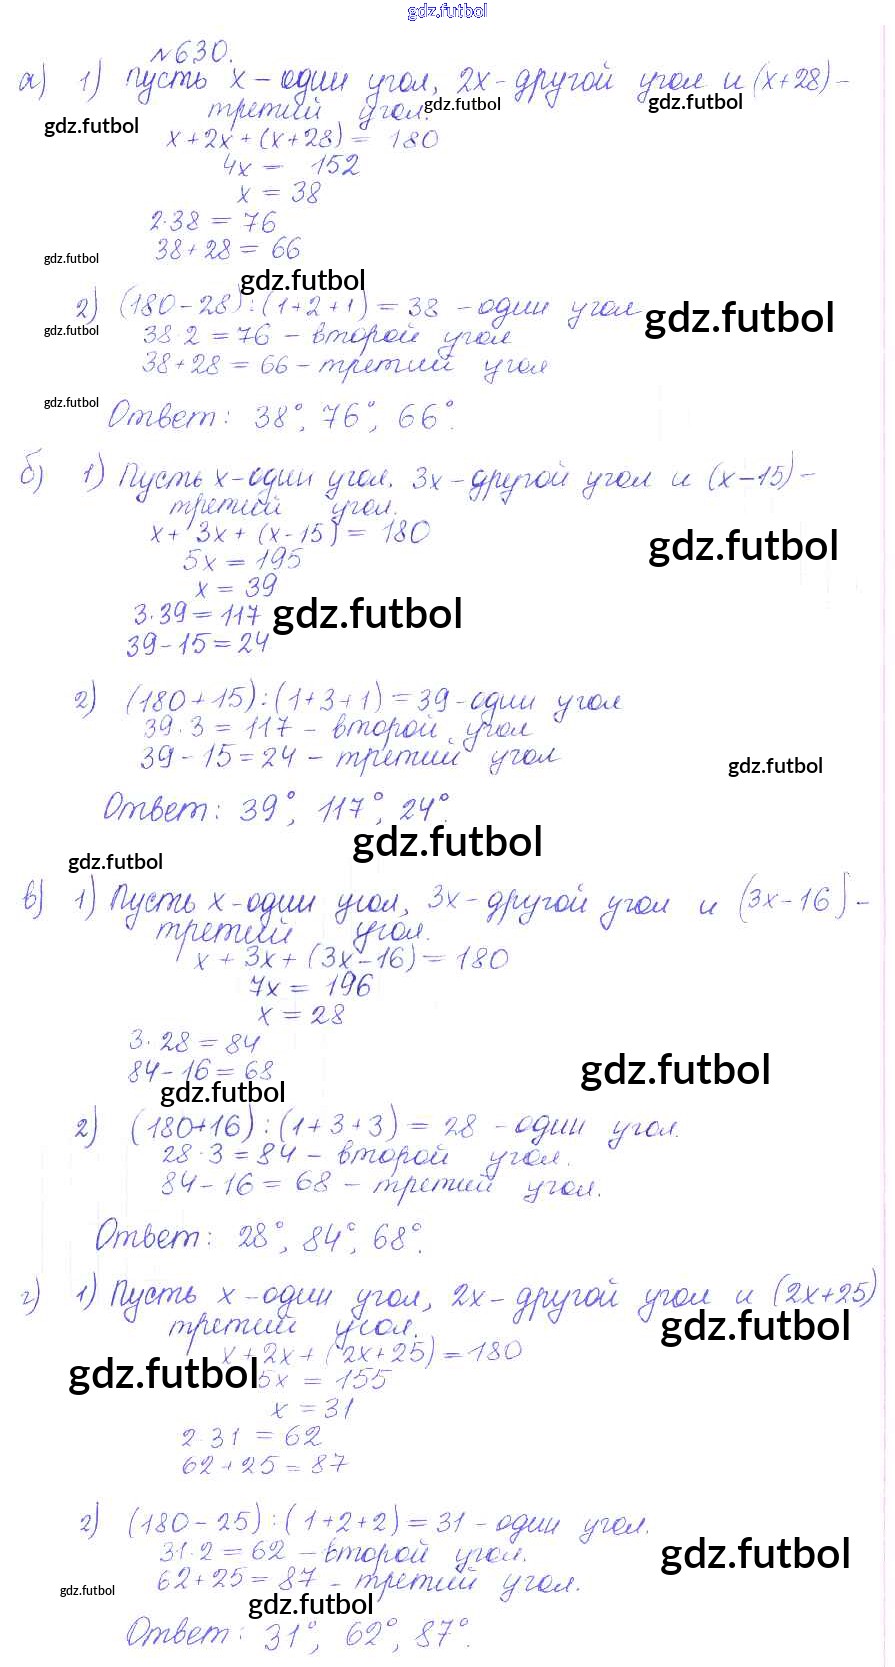 gdz.futbol
№630.
а) 1) Пусть x – один угол, 2x – другой угол и (x+28) –
третий угол.
gdz.futbol
gdz.futbol
gdz.futbol
x + 2x + (x+28) = 180
4x = 152
x = 38
2·38 = 76
38+28 = 66
gdz.futbol
gdz.futbol
2) (180-28):(1+2+1) = 38 – один угол
gdz.futbol
gdz.futbol
38·2 = 76 – второй угол
38+28 = 66 – третий угол
gdz.futbol
Ответ: 38°, 76°, 66°.
б) 1) Пусть x – один угол, 3x – другой угол и (x-15) –
третий угол.
x + 3x + (x-15) = 180
gdz.futbol
5x = 195
x = 39
3·39 = 117
gdz.futbol
39-15 = 24
2) (180+15):(1+3+1) = 39 – один угол
39·3 = 117 – второй угол
39-15 = 24 – третий угол
gdz.futbol
Ответ: 39°, 117°, 24°.
gdz.futbol
gdz.futbol
в) 1) Пусть x – один угол, 3x – другой угол и (3x-16) –
третий угол.
x + 3x + (3x-16) = 180
7x = 196
x = 28
3·28 = 84
84-16 = 68
gdz.futbol
gdz.futbol
2) (180+16):(1+3+3) = 28 – один угол.
28·3 = 84 – второй угол.
84-16 = 68 – третий угол.
Ответ: 28°, 84°, 68°.
г) 1) Пусть x – один угол, 2x – другой угол и (2x+25)
третий угол.
gdz.futbol
x + 2x + (2x+25) = 180
gdz.futbol
5x = 155
x = 31
2·31 = 62
62+25 = 87
2) (180-25):(1+2+2) = 31 – один угол.
31·2 = 62 – второй угол.
gdz.futbol
62+25 = 87 – третий угол.
gdz.futbol
gdz.futbol
Ответ: 31°, 62°, 87°.